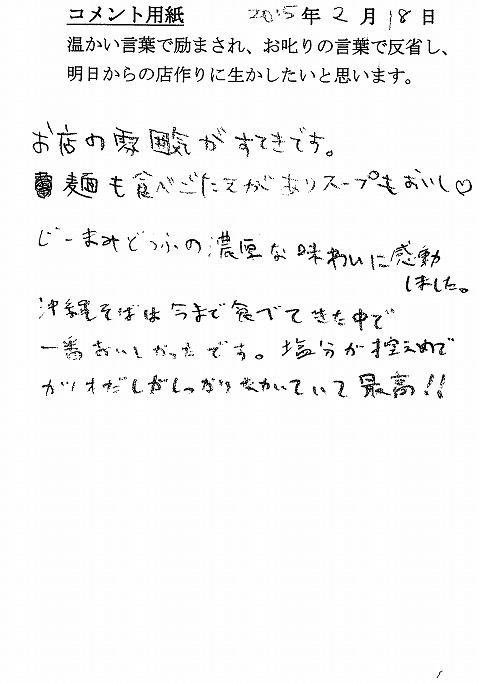 コメント用紙 2015年2月18日
温かい言葉で励まされ、お叱りの言葉で反省し、
明日からの店作りに生かしたいと思います。
お店の雰囲気がすてきです。
麺も食べごたえがありスープもおいし♡
じーまみどうふの濃厚な味わいに感動
しました。
沖縄そばは今まで食べてきた中で
一番おいしかったです。塩分が控えめで
カツオだしがしっかりきいていて最高!!